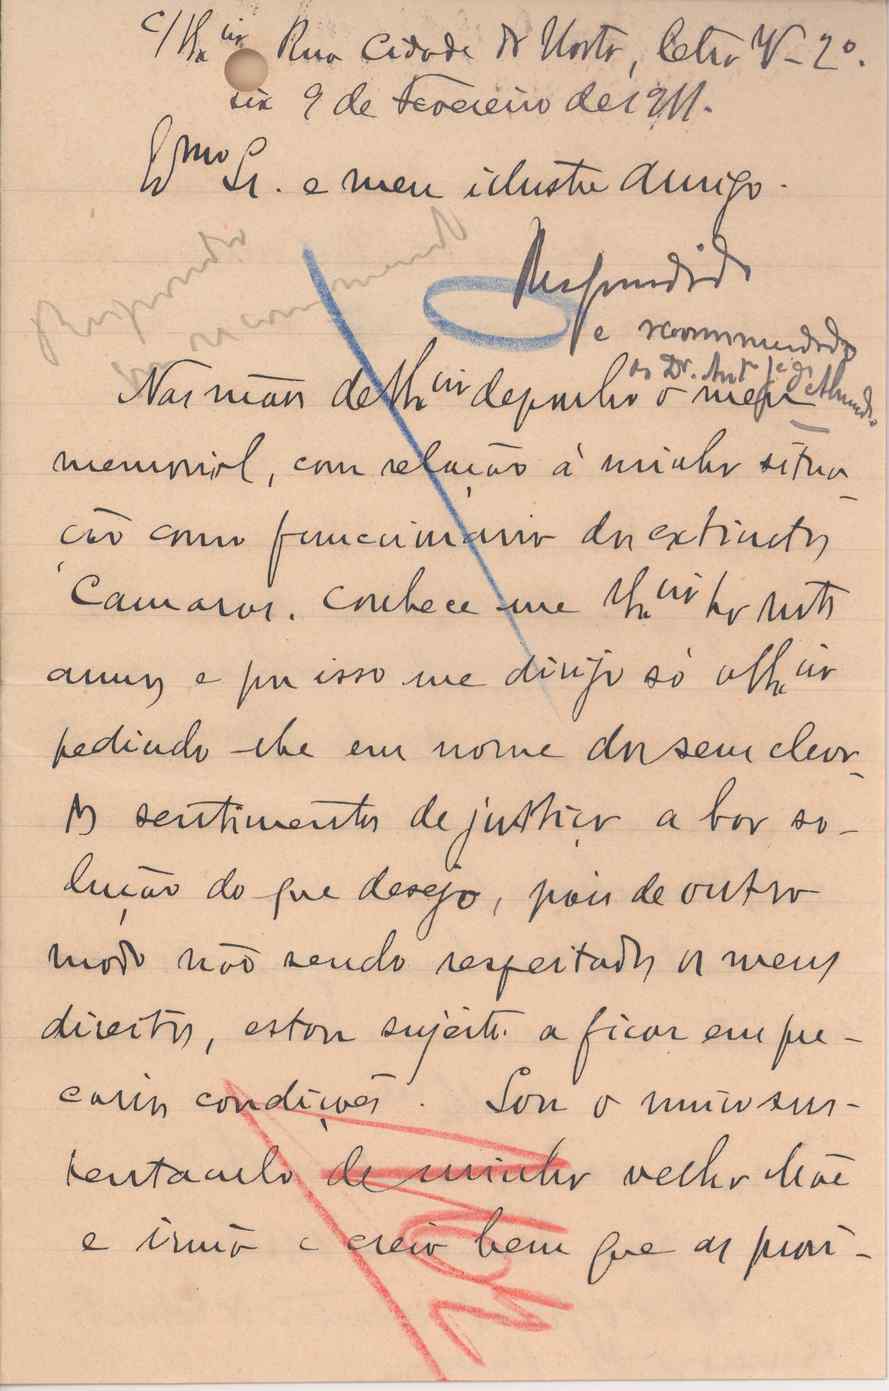 Rua Cidade da Horta, letra V-2º.
9 de Fevereiro de 1911.
Exmo Sr. e meu illustre Amigo.
Respondido
e recommendado
ao Dr. Antº Jé de Almeida
Respondido
recommendado
Nas mãos de V. Excia deponho o meu
memorial, com relação á minha situa
ção como funccionario das extinctas
Camaras. Conhece-me V. Excia ha muitos
annos e por isso me dirijo só a V. Excia
pedindo-lhe em nome dos seus eleva-
dos sentimentos de justiça a boa so-
lução do que desejo, pois de outro
modo não sendo respeitados os meus
direitos, estou sujeito a ficar em pre-
carias condições. Sou o unico sus-
tentaculo de minha velha Mãe
e irmã e creio bem que as